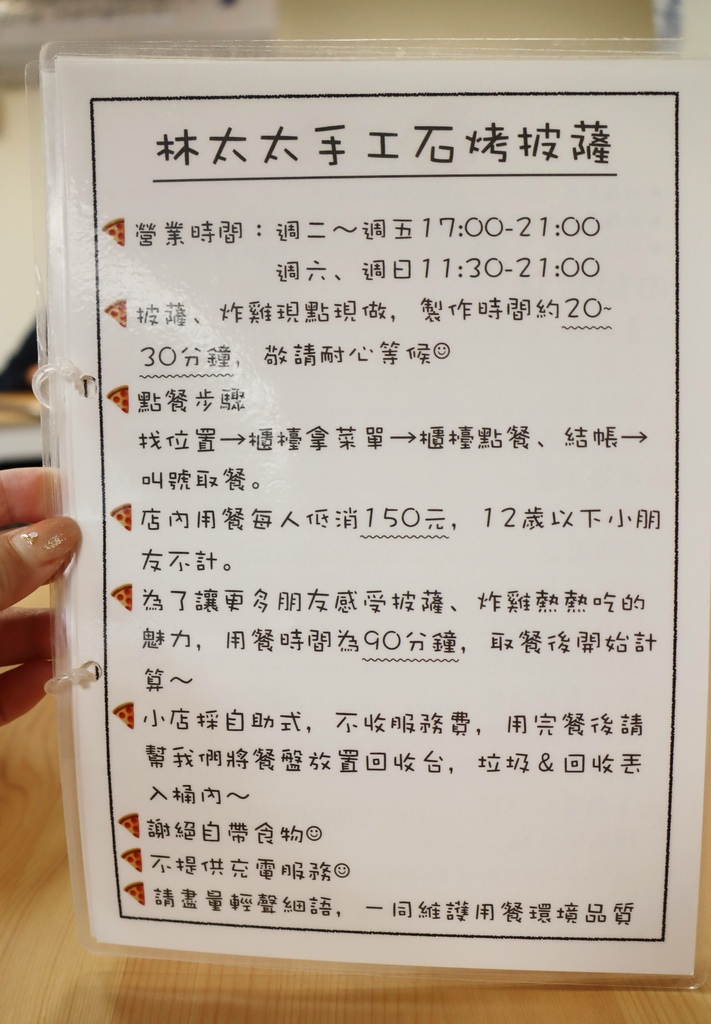 林太太手工石烤披薩
營業時間：週二～週五17:00-21:00
週六、週日11:30-21:00
披薩、炸雞現點現做，製作時間約20~
30分鐘，敬請耐心等候☺
點餐步驟
找位置→櫃檯拿菜單→櫃檯點餐、結帳→
叫號取餐。
店內用餐每人低消150元，12歲以下小朋
友不計。
為了讓更多朋友感受披薩、炸雞熱熱吃的
魅力，用餐時間為90分鐘，取餐後開始計
算～
小店採自助式，不收服務費，用完餐後請
幫我們將餐盤放置回收台，垃圾&回收丟
入桶內～
謝絕自帶食物☺
不提供充電服務☺
請盡量輕聲細語，一同維護用餐環境品質